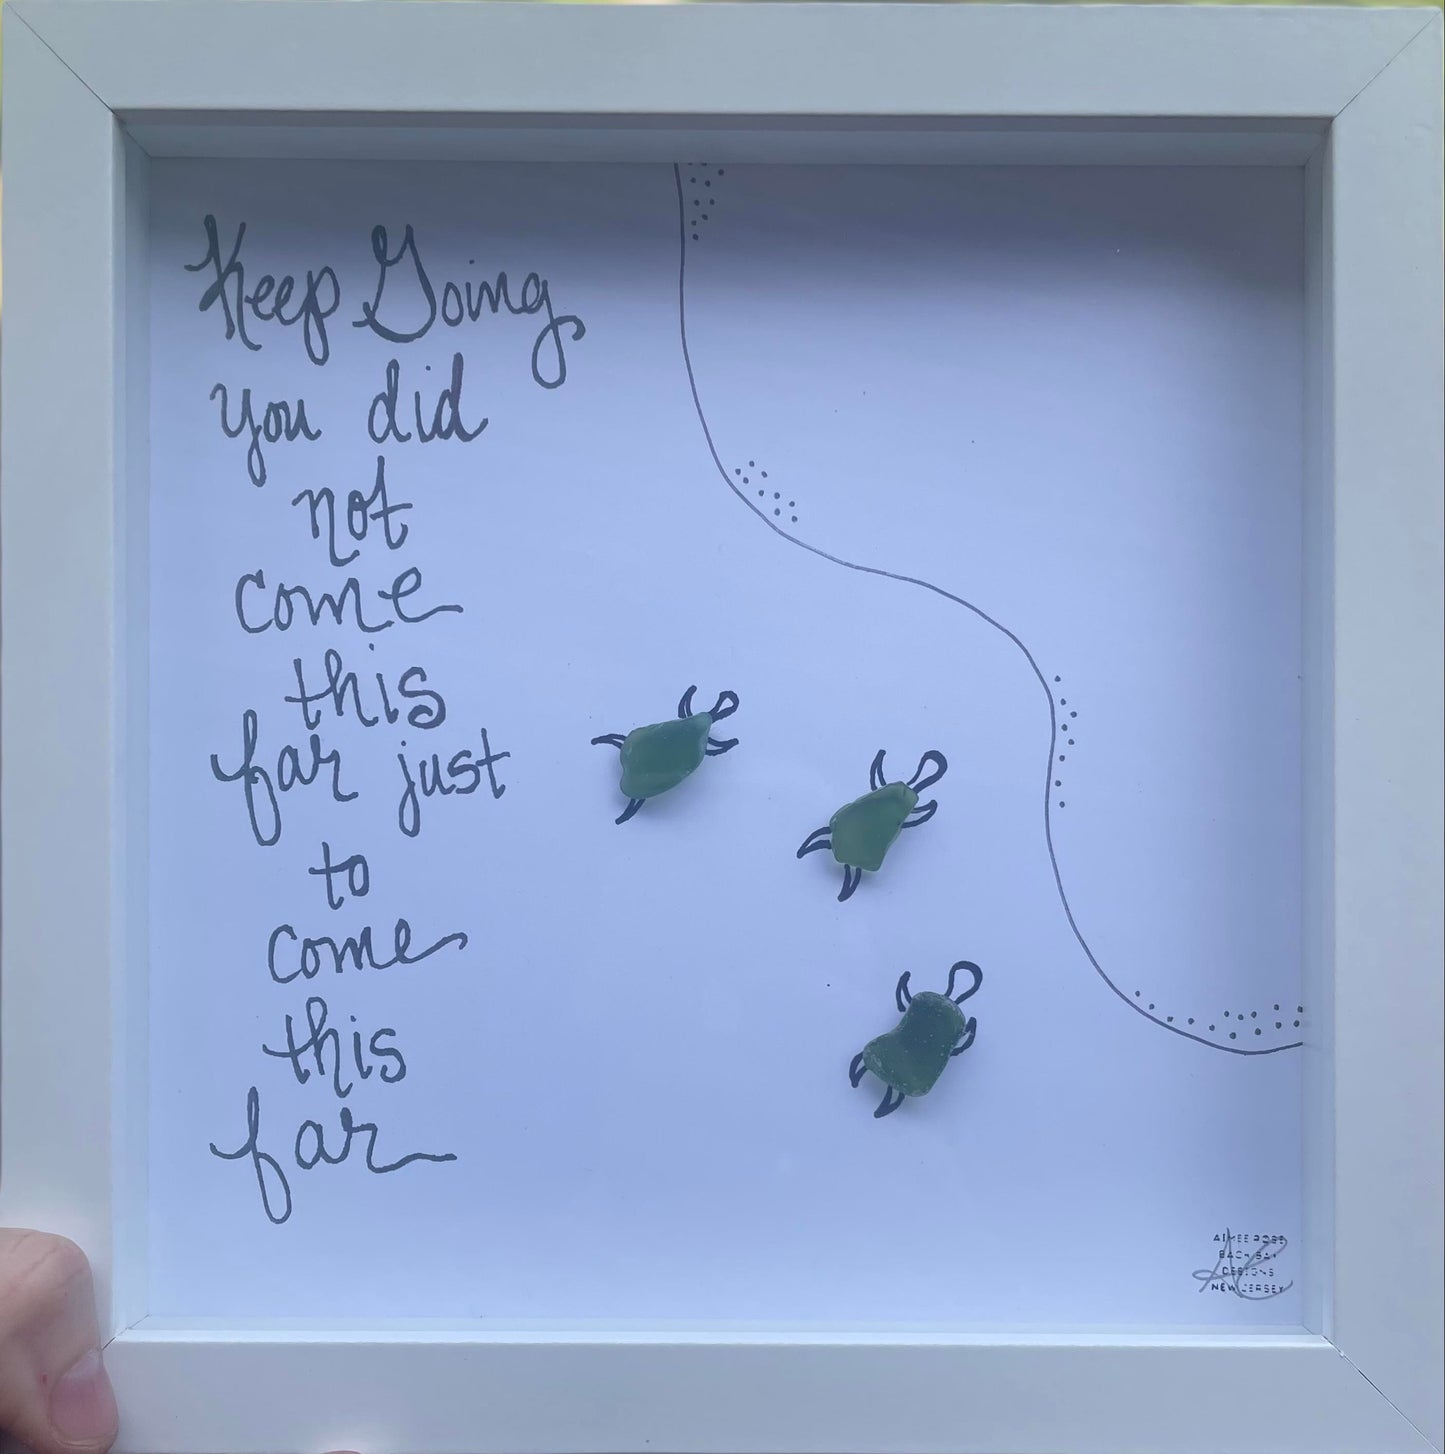 Keep Going
you did
not
come
this
far just
to
come
this
far
AIMEE ROSE
BACK BAY
DESIGNS
NEW JERSEY